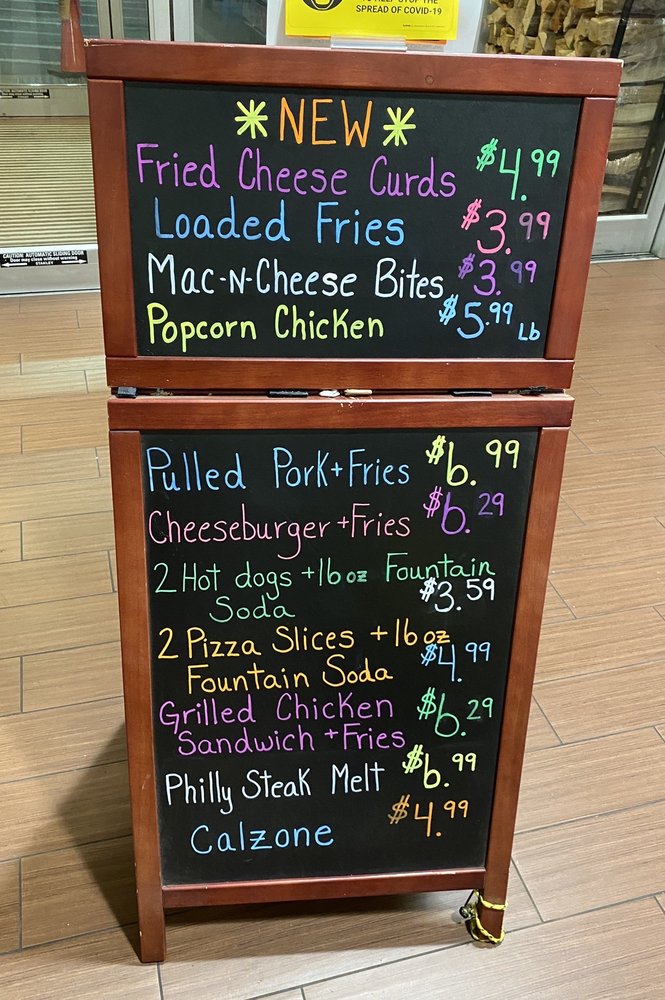 SPREAD OF COVID-19
CAUTION AUTOMATIC SLIDING DOOR
Door may close without warning
STANLEY
NEW
Fried Cheese Curds $4.99
Loaded Fries $3.99
Mac-N-Cheese Bites $3.99
Popcorn Chicken $5.99 Lb
Pulled Pork+Fries $6.99
Cheeseburger+Fries $6.29
2 Hot dogs +16oz Fountain
Soda $3.59
2 Pizza Slices +16oz
Fountain Soda $4.99
Grilled Chicken $6.29
Sandwich+Fries
Philly Steak Melt $6.99
Calzone $4.99